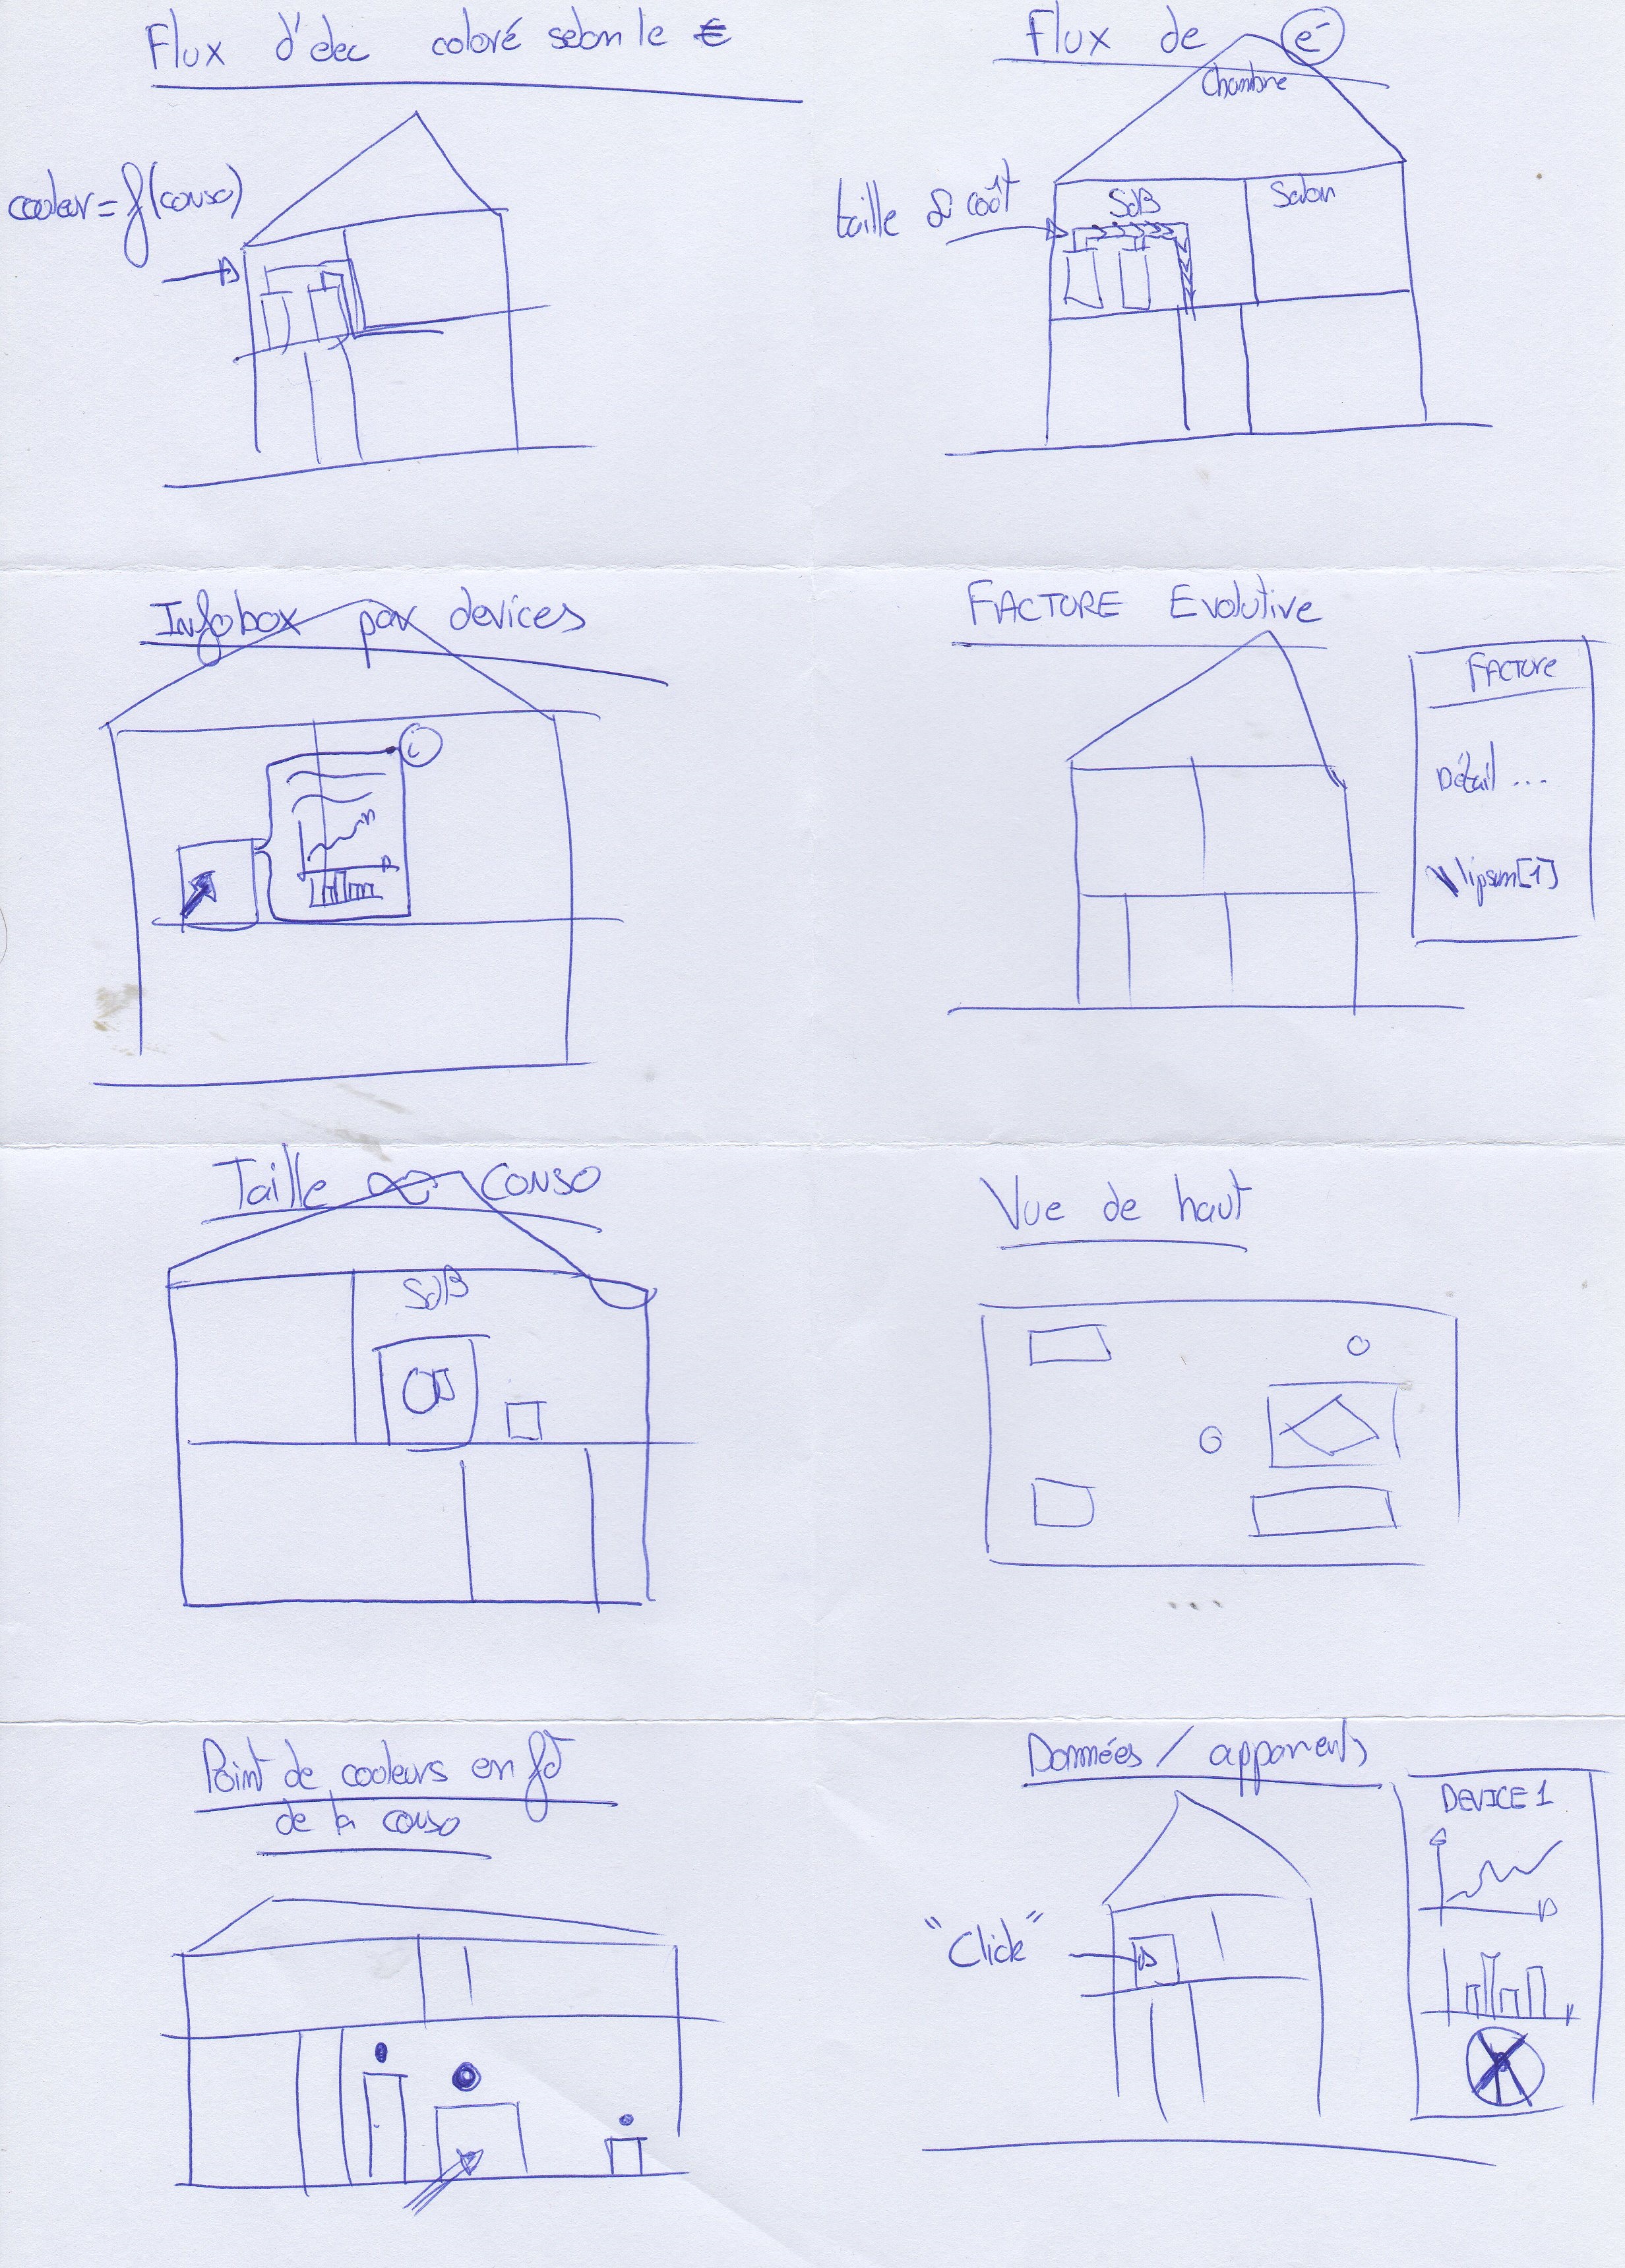 Flux d'elec coloré selon le €
couleur = f(conso)
Flux de e-
Chambre
taille ∝ coût
SdB
Salon
Infobox par devices
i
FACTURE Evolutive
FACTURE
Détail ...
lipsum[1]
Taille ∝ CONSO
SdB
Vue de haut
Point de couleurs en fct
de la conso
Données / appareils
DEVICE 1
"Click"